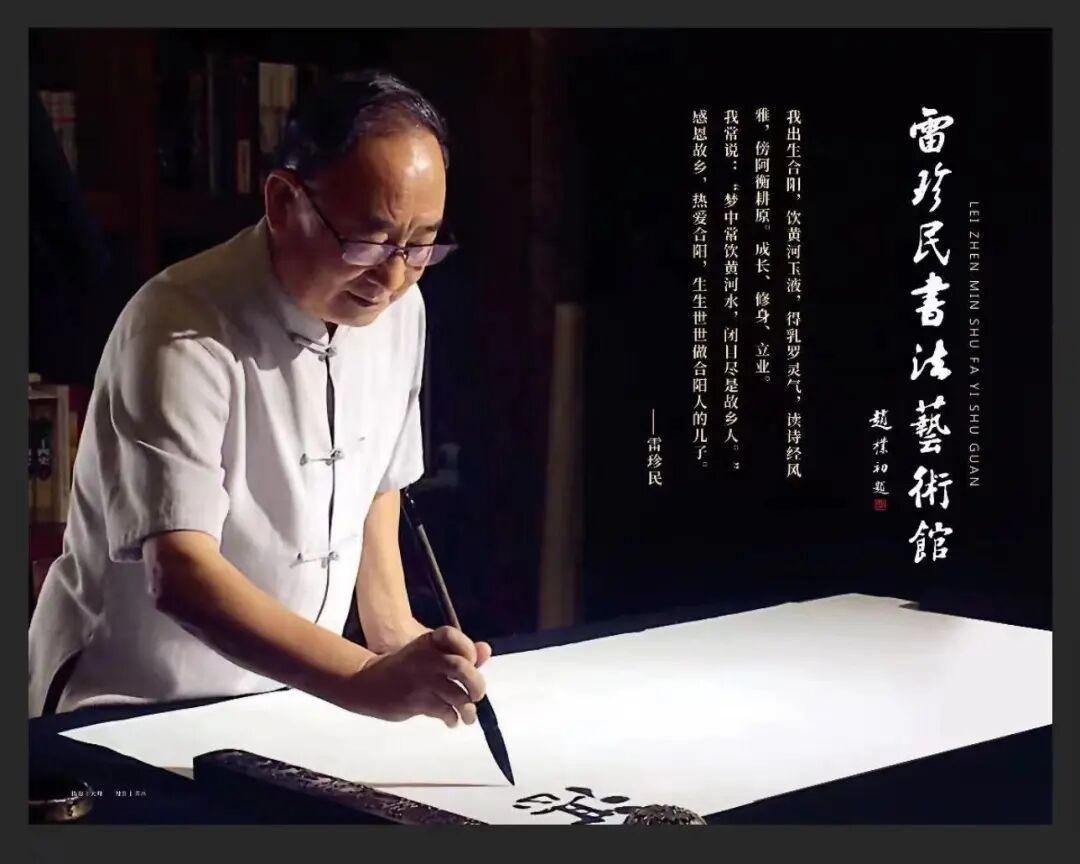 雷珍民書法藝術館
LEI ZHEN MIN SHU FA YI SHU GUAN
趙樸初題
我出生合阳，饮黄河玉液，得乳罗灵气，读诗经风
雅，傍阿衡耕原。成长、修身、立业。
我常说：“梦中常饮黄河水，闭目尽是故乡人。”
感恩故乡，热爱合阳，生生世世做合阳人的儿子。
——雷珍民